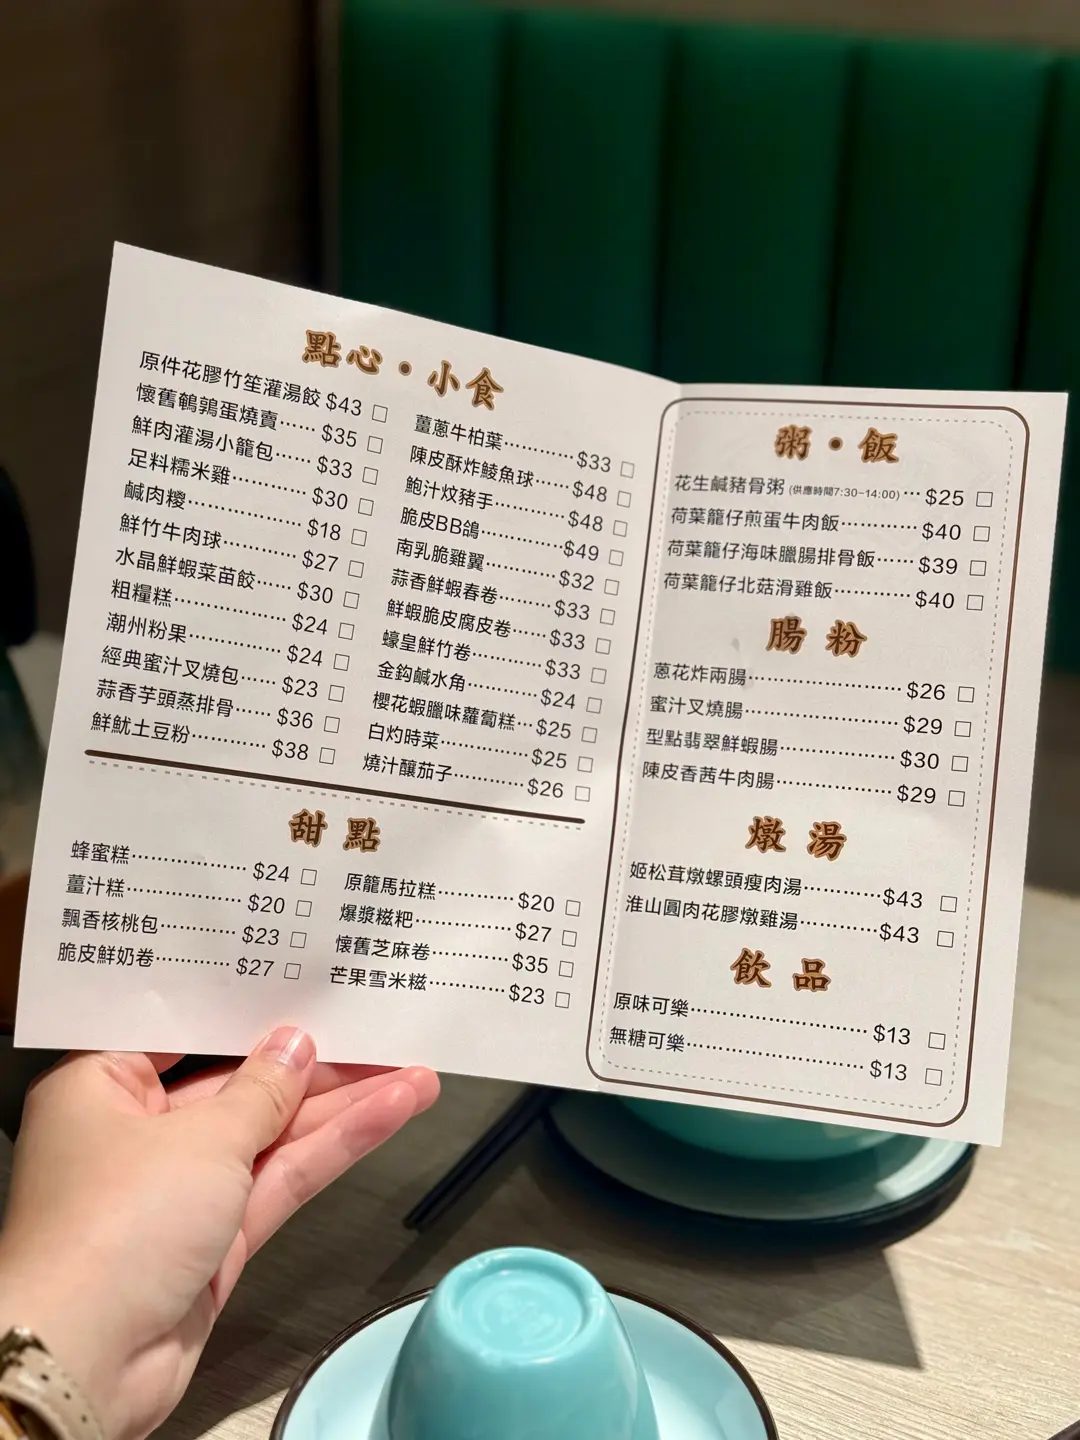 點心・小食
原件花膠竹笙灌湯餃 $43 □
懷舊鵪鶉蛋燒賣…… $35 □
鮮肉灌湯小籠包…… $33 □
足料糯米雞………… $30 □
鹹肉糉……………… $18 □
鮮竹牛肉球………… $27 □
水晶鮮蝦菜苗餃…… $30 □
粗糧糕……………… $24 □
潮州粉果…………… $24 □
經典蜜汁叉燒包…… $23 □
蒜香芋頭蒸排骨…… $36 □
鮮魷土豆粉………… $38 □
薑蔥牛柏葉………… $33 □
陳皮酥炸鯪魚球…… $48 □
鮑汁炆豬手………… $48 □
脆皮BB鴿………… $49 □
南乳脆雞翼………… $32 □
蒜香鮮蝦春卷……… $33 □
鮮蝦脆皮腐皮卷…… $33 □
蠔皇鮮竹卷………… $33 □
金鈎鹹水角………… $24 □
櫻花蝦臘味蘿蔔糕… $25 □
白灼時菜…………… $25 □
燒汁釀茄子………… $26 □
甜點
蜂蜜糕……………… $24 □
薑汁糕……………… $20 □
飄香核桃包………… $23 □
脆皮鮮奶卷………… $27 □
原籠馬拉糕………… $20 □
爆漿糍粑…………… $27 □
懷舊芝麻卷………… $35 □
芒果雪米糍………… $23 □
粥・飯
花生鹹豬骨粥 (供應時間7:30-14:00)… $25 □
荷葉籠仔煎蛋牛肉飯………… $40 □
荷葉籠仔海味臘腸排骨飯…… $39 □
荷葉籠仔北菇滑雞飯………… $40 □
腸粉
蔥花炸兩腸………………… $26 □
蜜汁叉燒腸………………… $29 □
型點翡翠鮮蝦腸…………… $30 □
陳皮香茜牛肉腸…………… $29 □
燉湯
姬松茸燉螺頭瘦肉湯……… $43 □
淮山圓肉花膠燉雞湯……… $43 □
飲品
原味可樂…………………… $13 □
無糖可樂…………………… $13 □